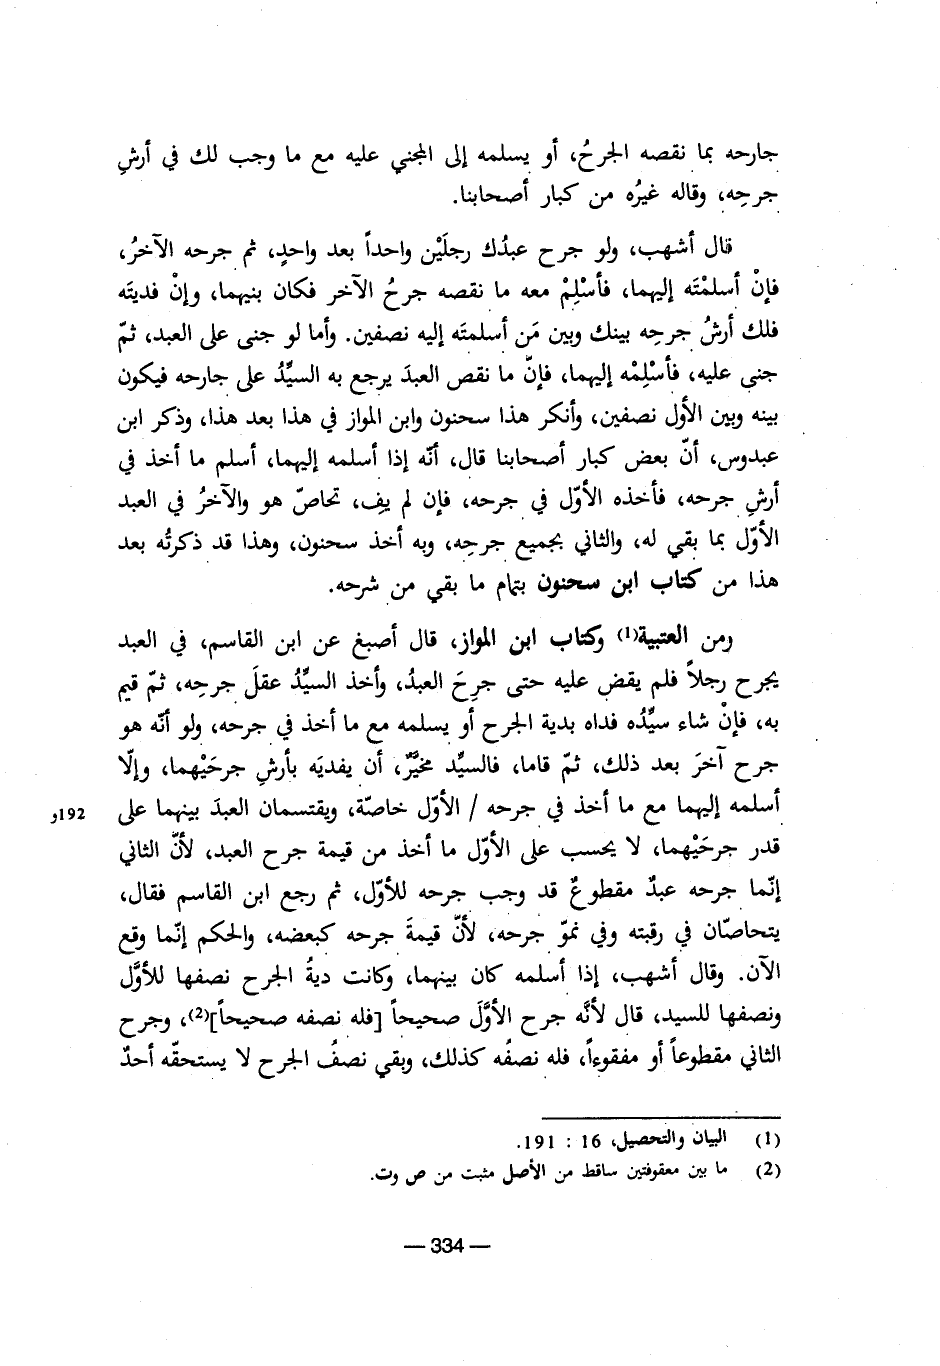 جارحه بما نقصه الجرحُ، أو يسلمه إلى المجني عليه مع ما وجب لك في أرشِ
جرحِه، وقاله غيرُه من كبار أصحابنا.
قال أشهب، ولو جرح عبدُك رجلَيْن واحداً بعد واحدٍ، ثم جرحه الآخرُ،
فإنْ أسلمْتَه إليهما، فأسْلِمْ معه ما نقصه جرحُ الآخر فكان بنيهما، وإنْ فديتَه
فلك أرشُ جرحِه بينك وبين مَن أسلمتَه إليه نصفين. وأما لو جنى على العبد، ثمّ
جنى عليه، فأسْلِمْه إليهما، فإنّ ما نقص العبدَ يرجع به السيِّدُ على جارحه فيكون
بينه وبين الأول نصفين، وأنكر هذا سحنون وابن المواز في هذا بعد هذا، وذكر ابن
عبدوس، أنّ بعض كبار أصحابنا قال، أنّه إذا أسلمه إليهما، أسلم ما أخذ في
أرشِ جرحه، فأخذه الأوّل في جرحه، فإن لم يفِ، تحاصّ هو والآخرُ في العبد
الأوّل بما بقي له، والثاني بجميع جرحِه، وبه أخذ سحنون، وهذا قد ذكرتُه بعد
هذا من كتاب ابن سحنون بتمام ما بقي من شرحه.
ومن العتبية(1) وكتاب ابن المواز، قال أصبغ عن ابن القاسم، في العبد
يجرح رجلاً فلم يقض عليه حتى جرِحَ العبدُ، وأخذ السيِّدُ عقلَ جرحِه، ثمّ قيم
به، فإنْ شاء سيِّدُه فداه بدية الجرح أو يسلمه مع ما أخذ في جرحه، ولو أنّه هو
جرح آخرَ بعد ذلك، ثمّ قاما، فالسيِّد مخيَّرٌ، أن يفديَه بأرشِ جرحَيْهما، وإلّا
أسلمه إليهما مع ما أخذ في جرحه / الأوّل خاصّة، ويقتسمان العبدَ بينهما على
192و
قدر جرحَيْهما، لا يحسب على الأوّل ما أخذ من قيمة جرح العبد، لأنّ الثاني
إنّما جرحه عبدٌ مقطوعٌ قد وجب جرحه للأوّل، ثم رجع ابن القاسم فقال،
يتحاصّان في رقبته وفي نموّ جرحه، لأنّ قيمةَ جرحه كبعضه، والحكم إنّما وقع
الآن. وقال أشهب، إذا أسلمه كان بينهما، وكانت ديةُ الجرح نصفها للأوَّل
ونصفها للسيد، قال لأنَّه جرح الأوَّلَ صحيحاً [فله نصفه صحيحاً](2)، وجرح
الثاني مقطوعاً أو مفقوءاً، فله نصفُه كذلك، وبقي نصفُ الجرح لا يستحقّه أحدٌ
(1) البيان والتحصيل، 16 : 191.
(2) ما بين معقوفتين ساقط من الأصل مثبت من ص وت.
— 334 —